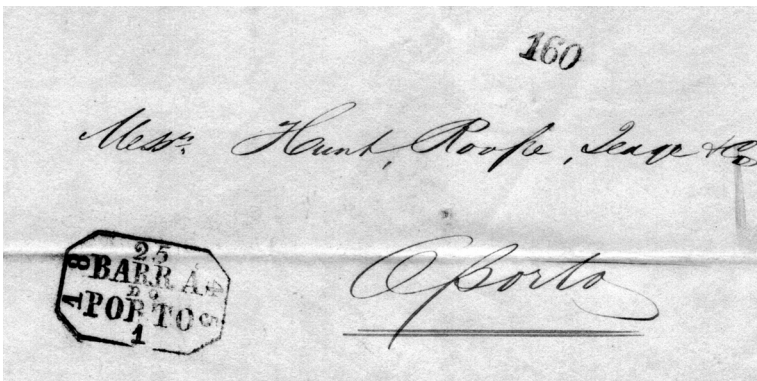 160
Messrs. Hunt, Roope, Teage & Co
Oporto
25
BARRA
DO
PORTO
1
18
45